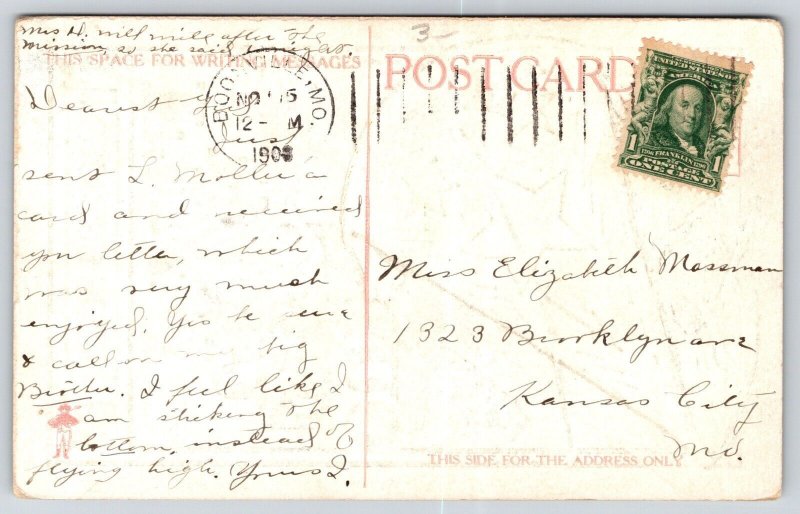 Miss D. will mile after the
Mission, so she said tonight.
THIS SPACE FOR WRITING MESSAGES
Dearest
Just
sent L. Moller a
card and received
your letter, which
was very much
enjoyed. Yes be sure
& call on my big
Brother. I feel like I
am sticking the
bottom, instead of
flying high. Yours L.
BOONVILLE, MO.
NO 15
12- M
190
3-
POST CARD
UNITED STATES OF
AMERICA
1 FRANKLIN 1
POSTAGE
ONE CENT
Miss Elizabeth Mossman
1323 Brooklyn ave
Kansas City
Mo.
THIS SIDE FOR THE ADDRESS ONLY